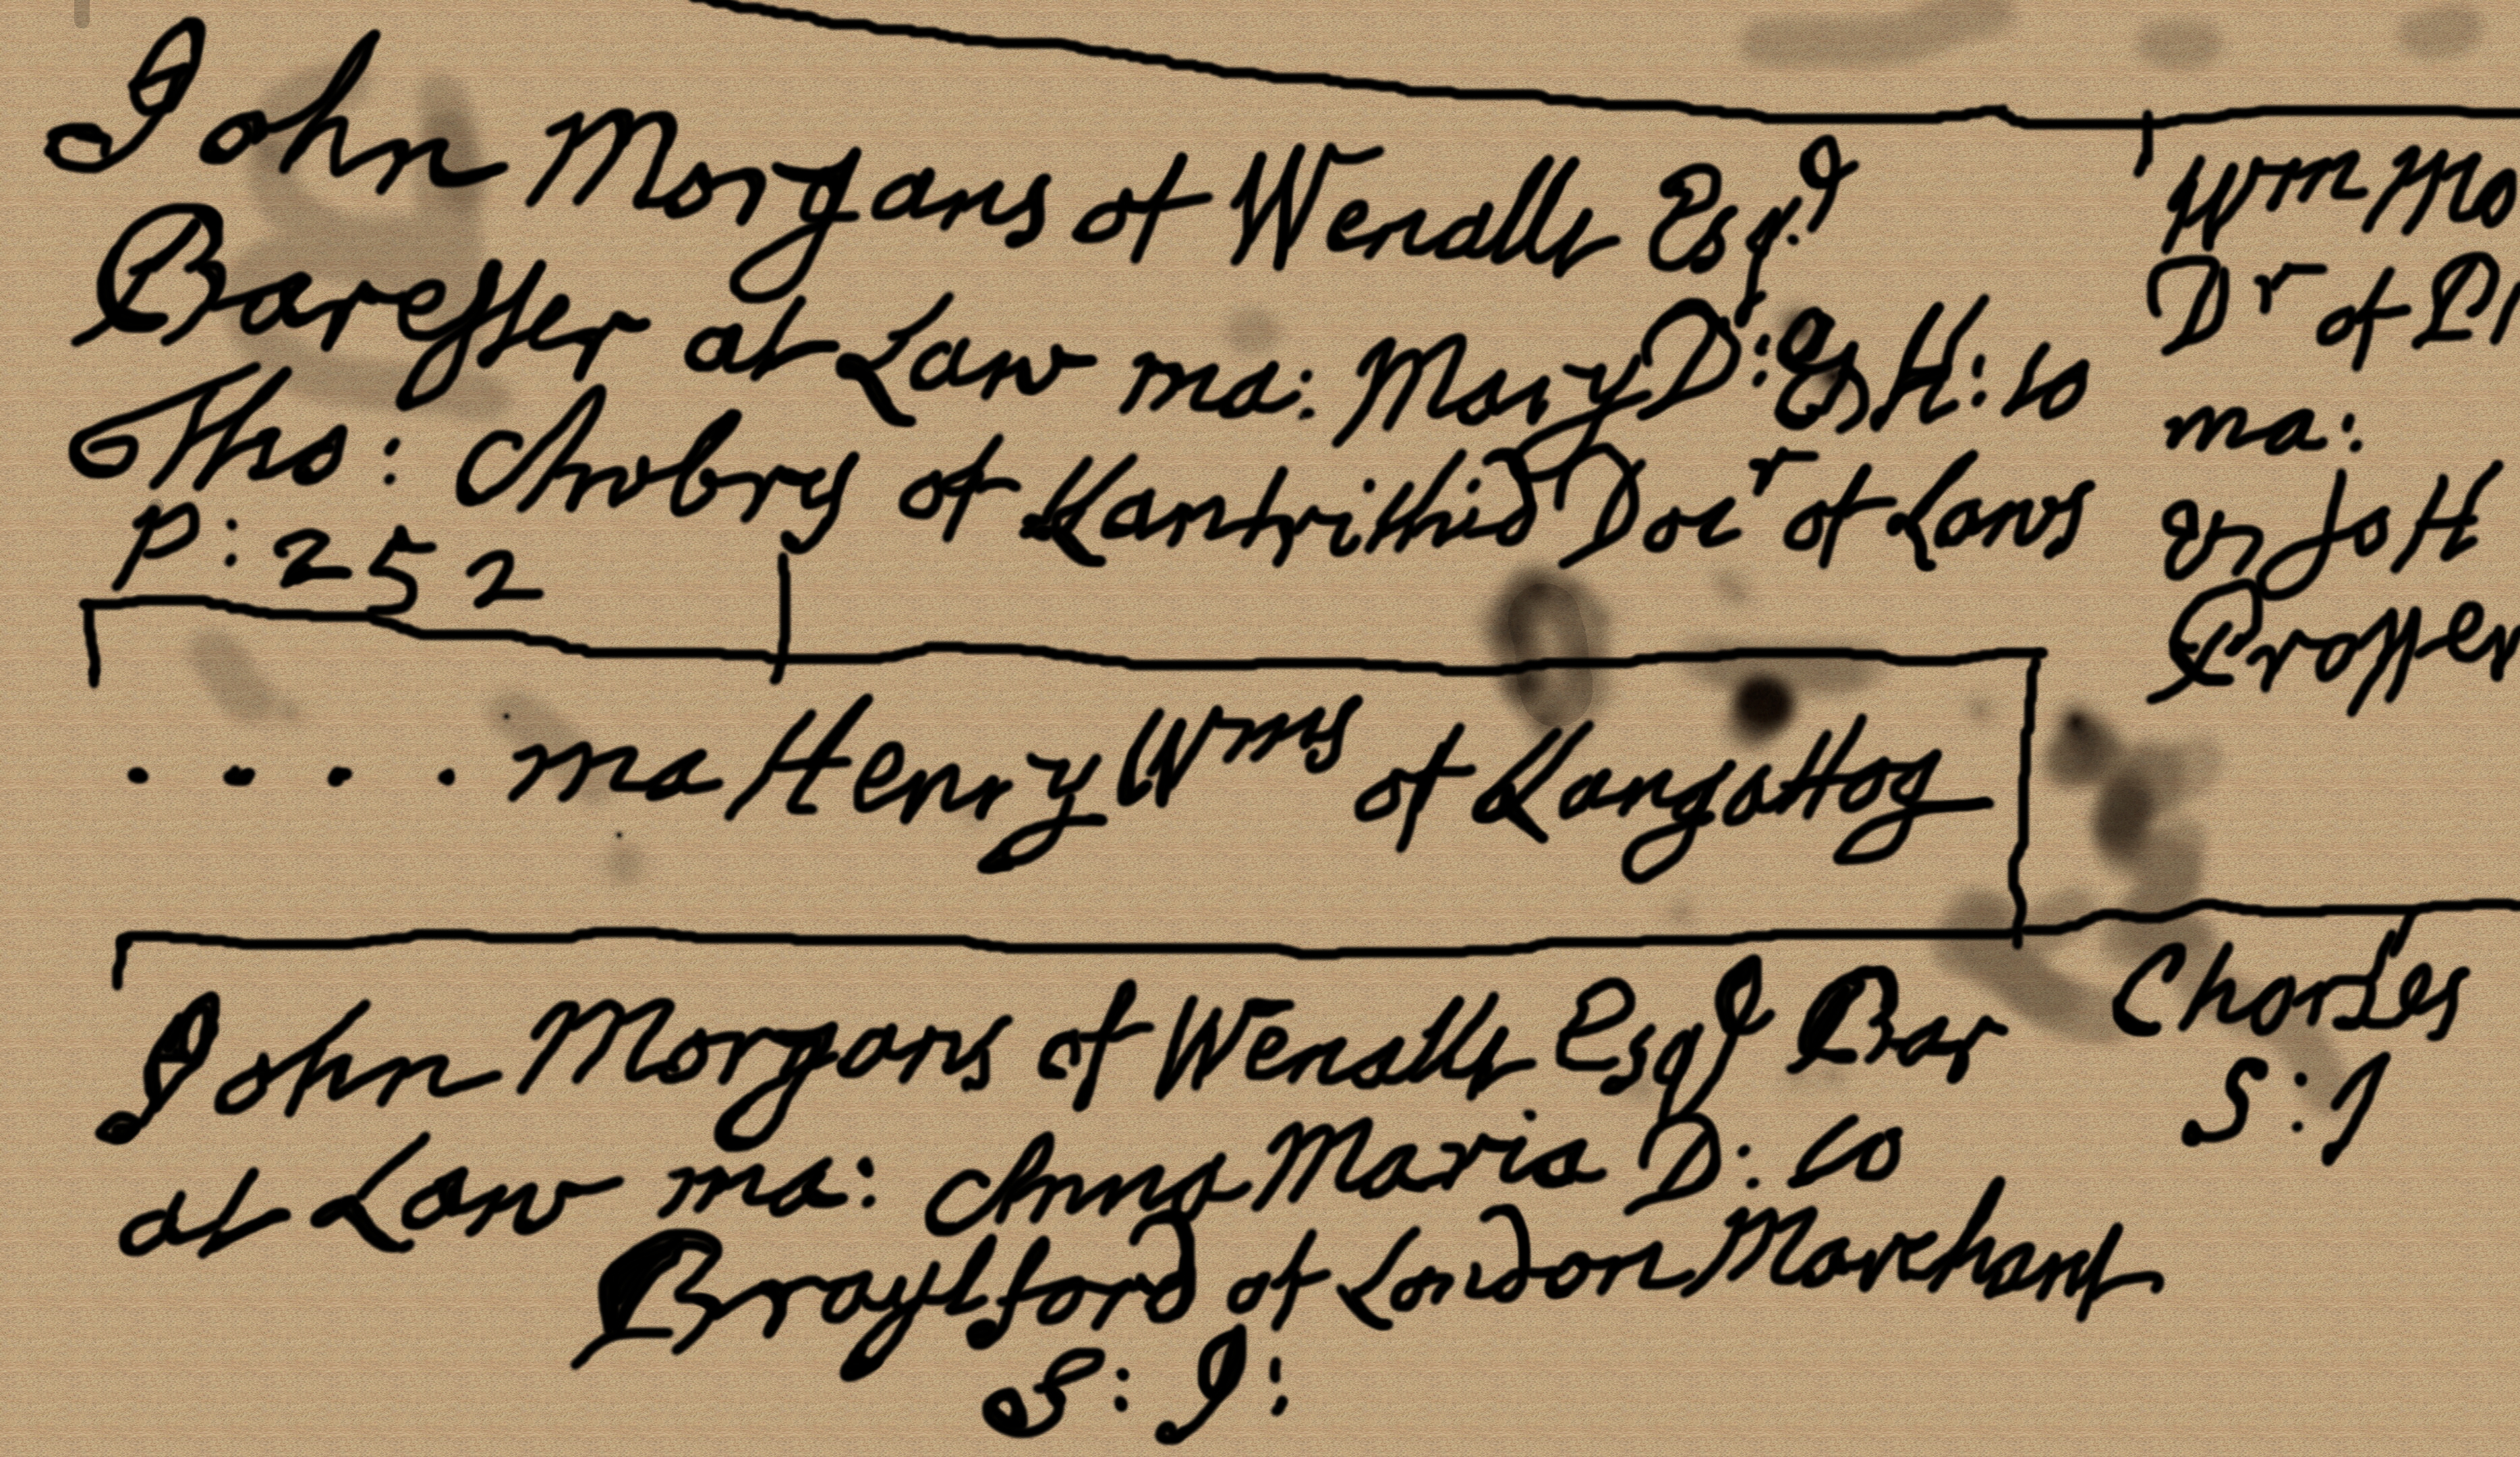 John Morgans of Wendly Esqr
Barester at Law ma: Mary D: & H: to
Tho: Awbry of Lantrithid Doctr of Laws
p: 252
Wm Mo
Dr of Di
ma:
& Jo H
Proffer
. . . . ma Henry Wms of Langattog
John Morgans of Wendly Esqr Bar
at Law ma: Anna Maria D: to
Braylsford of London Marchant
S: J:
Charles
S: J